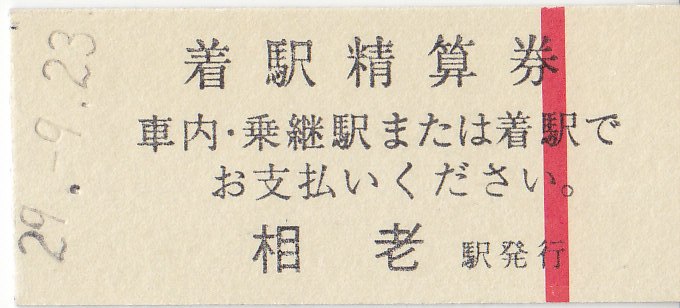 着駅精算券
車内・乗継駅または着駅で
お支払いください。
相老 駅発行
29.-9.23